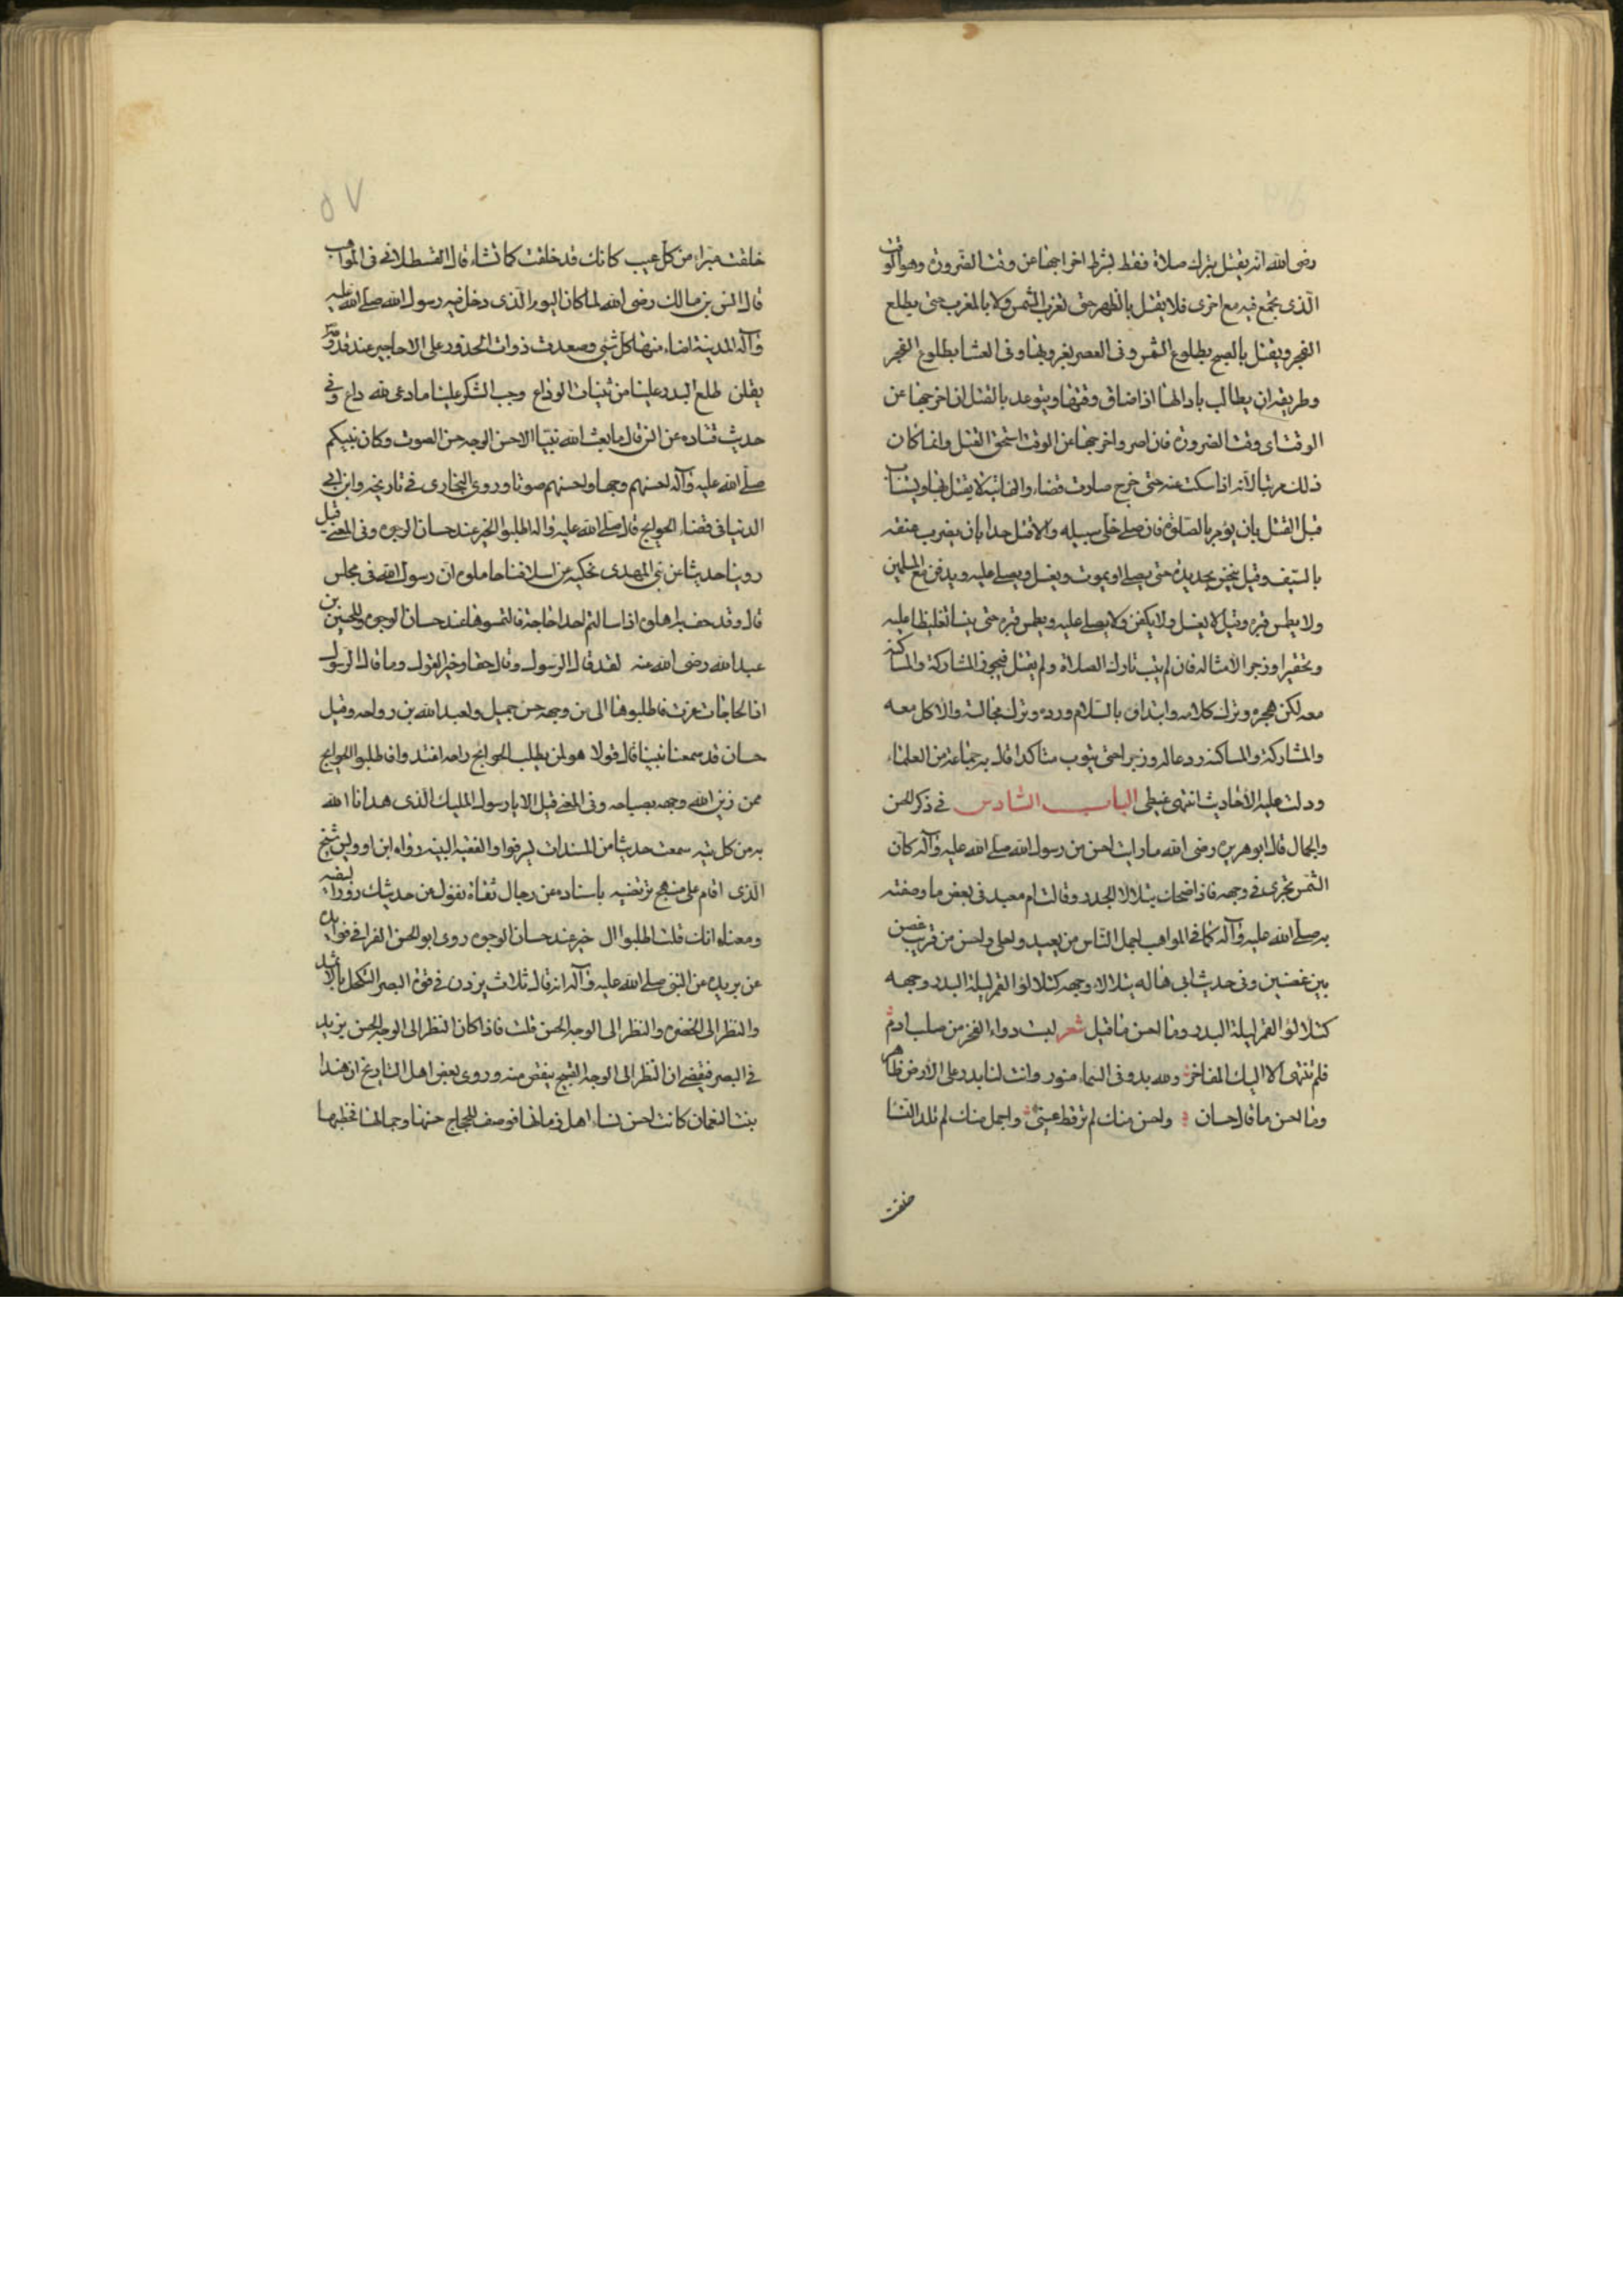 رضى الله انه يقتل بترك صلاة فقط بشرط اخراجها عن وقت الضرورة وهو الوقت
الذى تجمع فيه مع اخرى فلا يقتل بالظهر حتى تغرب الشمس ولا بالمغرب حتى يطلع
الفجر ويقتل بالصبح بطلوع الشمس وفى العصر بغروبها وفى العشا بطلوع الفجر
وطريقه ان يطالب بادائها اذا ضاق وقتها ويتوعد بالقتل ان اخرجها عن
الوقت اى وقت الضرورة فان اصر واخرجها عن الوقت استحق القتل وانما كان
ذلك مرتبا لانه اذا سكت عنه حتى خرج صارت قضاء والفائتة لا يقتل بها ويستتاب
قبل القتل بان يؤمر بالصلوة فان صلى خلى سبيله والا قتل حدا بان يضرب عنقه
بالسيف وقيل ينخز بحديدة حتى يصلى او يموت ويغسل ويصلى عليه ويدفن مع المسلمين
ولا يطمس قبره وقيل لا يغسل ولا يكفن ولا يصلى عليه ويطمس قبره حتى ينسا تغليظا عليه
وتحقيرا وزجرا لامثاله فان لم يتب تارك الصلاة ولم يقتل فيجوز المشاركة والمساكنة
معه لكن هجره وترك كلامه وابتداؤه بالسلام ورده وترك مجالسته والاكل معه
والمشاركة والمساكنة ردعا له وزجرا حتى يتوب متاكدا قال به جماعة من العلماء
ودلت عليه الاحاديث انتهى غيطى الباب السادس فى ذكر الحسن
والجمال قال ابو هريرة رضى الله ما رايت احسن من رسول الله صلى الله عليه وآله كان
الشمس تجرى فى وجهه فاذا ضحك يتلالا الجدر وقالت ام معبد فى بعض ما وصفته
به صلى الله عليه وآله كما فى المواهب اجمل الناس من بعيد واحلى واحسن من قريب غصن
بين غصنين وفى حديث ابى هاله يتلالاء وجهه كتلالؤ القمر ليلة البدر وجهه
كتلالؤ القمر ليلة البدر وما احسن ما قيل شعر لبث دواء الفخر من صلب ادم
فلم تنتهى الا اليك المفاخر ولله بدر فى السماء منور وانت لنا بدر على الارض ظاهر
وما احسن ما قال حسان واحسن منك لم تر قط عينى واجمل منك لم تلد النسا
خلقت
خلقت مبراء من كل عيب كانك قد خلقت كما تشاء قال القسطلانى فى المواهب
قال انس بن مالك رضى الله لما كان اليوم الذى دخل فيه رسول الله صلى الله عليه
وآله المدينة اضاء منها كل شئ وصعدت ذوات الخدور على الاجاجير عند قدومه
يقلن طلع البدر علينا من ثنيات الوداع وجب الشكر علينا ما دعى لله داع وفى
حديث قتاده عن انس قال ما بعث الله نبيا الا حسن الوجه حسن الصوت وكان نبيكم
صلى الله عليه وآله احسنهم وجها واحسنهم صوتا وروى البخارى فى تاريخه وابن ابى
الدنيا فى قضاء الحوايج قال صلى الله عليه وآله اطلبوا الخير عند حسان الوجوه وفى المعنى قيل
روينا حديثا عن بنى المهدى نحكيه عن اسلافنا حاملوه ان رسول الله فى مجلس
قال وقد حف به اهلوه اذا سالتم احدا حاجة فالتمسوها عند حسان الوجوه وللحسين بن
عبد الله رضى الله عنه لقد قال الرسول وقال حقا وخير القول ما قال الرسول
اذا الحاجات عزت فاطلبوها الى من وجهه حسن جميل ولعبد الله بن رواحه وقيل
حسان قد سمعنا نبينا قال قولا هو لمن يطلب الحوايج راحه اغتدوا فاطلبوا الحوايج
ممن زين الله وجهه بصباحه وفى المعنى قيل الا يا رسول المليك الذى هدانا الله
به من كل تيه سمعت حديثا من المسندات يسر فؤاد الفقيه النبيه رواه ابن اويس شيخ
الذى اقام على منهج نرتضيه باسناده عن رجال ثقاة نقول من حديثك
ومعناه انك قلت اطلبوا ال خير عند حسان الوجوه روى ابو الحسن الفرا فى فوايده
عن بريده عن النبى صلى الله عليه وآله انه قال ثلاث يزدن فى قوة البصر التكحل بالاثمد
والنظر الى الخضره والنظر الى الوجه الحسن قلت فاذا كان النظر الى الوجه الحسن يزيد
فى البصر فيقضى ان النظر الى الوجه القبيح ينقص منه وروى بعض اهل التاريخ ان هندا
بنت النعمان كانت احسن نساء اهل زمانها فوصف للحجاج حسنها وجمالها فخطبها